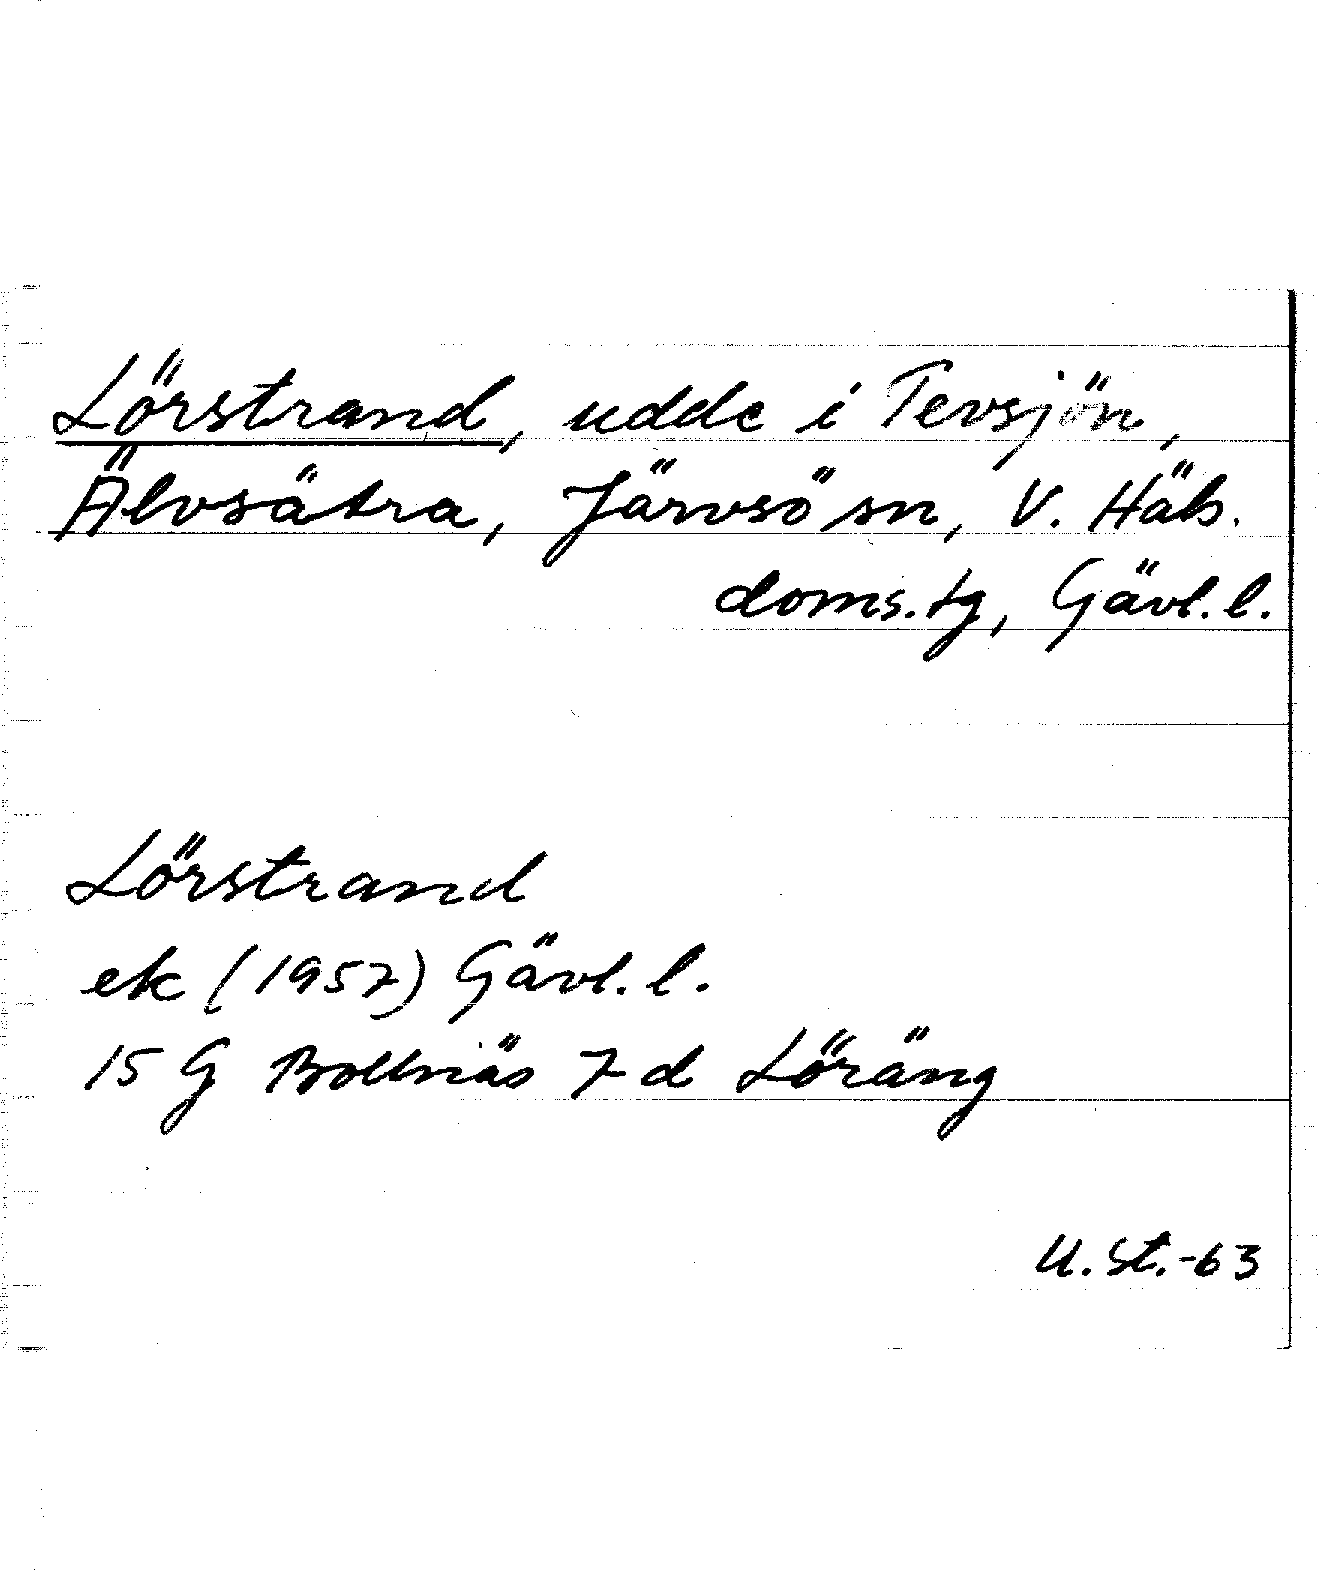 Lörstrand, udde i Tevsjön,
Älvsätra, Järvsö sn, V. Häls.
doms.tg, Gävl.l.
Lörstrand
ek (1957) Gävl.l.
15 G Bollnäs 7 d Löräng
U.St.-63